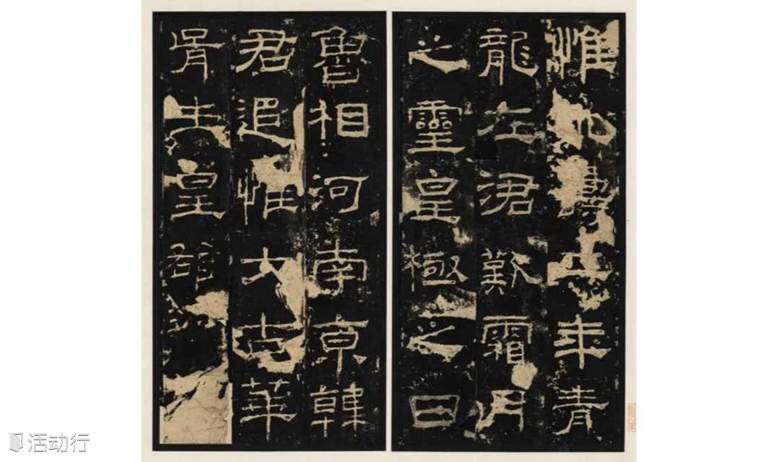 惟永壽二年青
龍在涒歎霜月
之靈皇極之日
魯相河南京韓
君追惟大古華
胥生皇雄
活动行